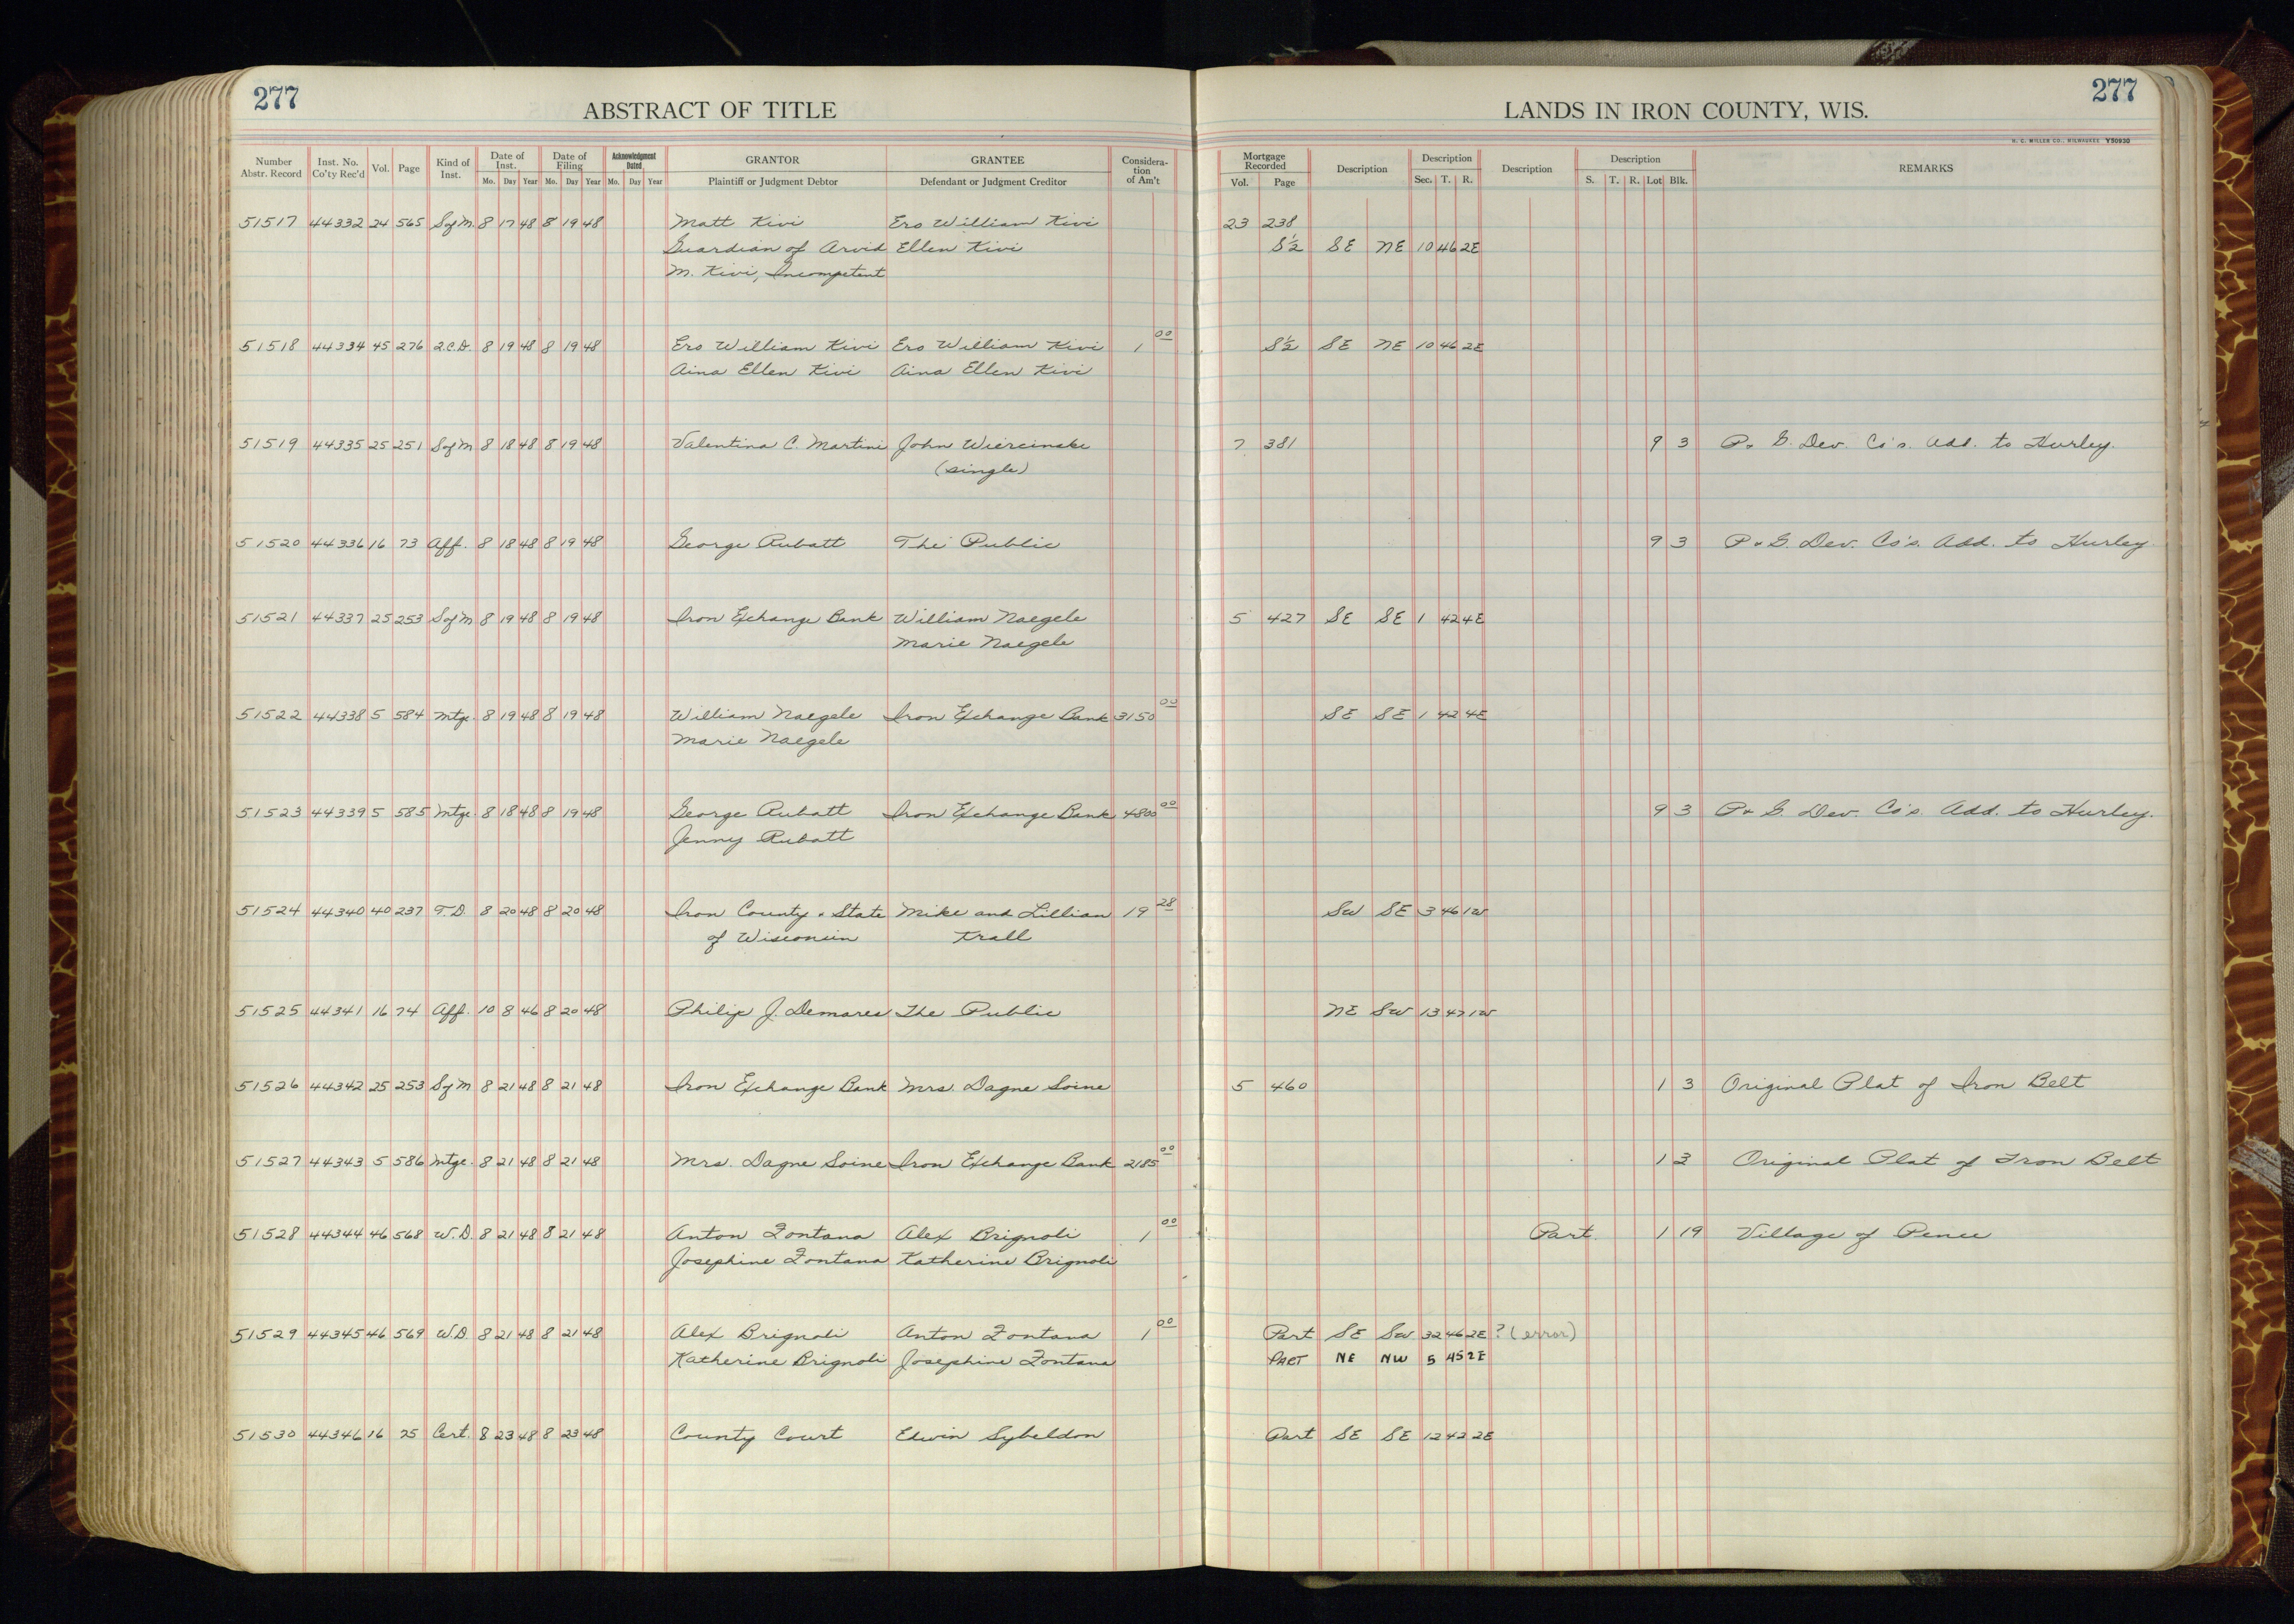 277
ABSTRACT OF TITLE
LANDS IN IRON COUNTY, WIS.
277
H. C. MILLER CO., MILWAUKEE Y50930
Number Abstr. Record | Inst. No. Co'ty Rec'd | Vol. | Page | Kind of Inst. | Date of Inst. Mo. Day Year | Date of Filing Mo. Day Year | Acknowledgment Dated Mo. Day Year | GRANTOR Plaintiff or Judgment Debtor | GRANTEE Defendant or Judgment Creditor | Consideration of Am't | Mortgage Recorded Vol. Page | Description | Description Sec. T. R. | Description | Description S. T. R. Lot Blk. | REMARKS
51517 44332 24 565 S of M. 8 17 48 8 19 48 Matt Kivi Ero William Kivi 23 238
Guardian of Arvid Ellen Kivi S½ SE NE 10 46 2E
M. Kivi, Incompetent
51518 44334 45 276 2.C.D. 8 19 48 8 19 48 Ero William Kivi Ero William Kivi 1 00 S½ SE NE 10 46 2E
Aina Ellen Kivi Aina Ellen Kivi
51519 44335 25 251 S of M 8 18 48 8 19 48 Valentina C. Martini John Wiercinske 7 381 9 3 P. G. Dev. Co's. Add. to Hurley.
(single)
51520 44336 16 73 Aff. 8 18 48 8 19 48 George Rubatt The Public 9 3 P & G. Dev. Co's. Add. to Hurley
51521 44337 25 253 S of M 8 19 48 8 19 48 Iron Exchange Bank William Naegele 5 427 SE SE 1 42 4E
Marie Naegele
51522 44338 5 584 Mtge. 8 19 48 8 19 48 William Naegele Iron Exchange Bank 3150 00 SE SE 1 42 4E
Marie Naegele
51523 44339 5 585 Mtge. 8 18 48 8 19 48 George Rubatt Iron Exchange Bank 4800 00 9 3 P & G. Dev. Co's. Add. to Hurley.
Jenny Rubatt
51524 44340 40 237 T.D. 8 20 48 8 20 48 Iron County & State Mike and Lillian 19 28 SW SE 3 46 1W
of Wisconsin Krall
51525 44341 16 74 Aff. 10 8 46 8 20 48 Philip J. Demares The Public NE SW 13 47 1W
51526 44342 25 253 S of M 8 21 48 8 21 48 Iron Exchange Bank Mrs. Dagne Soine 5 460 1 3 Original Plat of Iron Belt
51527 44343 5 586 Mtge. 8 21 48 8 21 48 Mrs. Dagne Soine Iron Exchange Bank 2185 00 1 3 Original Plat of Iron Belt
51528 44344 46 568 W.D. 8 21 48 8 21 48 Anton Fontana Alex Brignoli 1 00 Part 1 19 Village of Pence
Josephine Fontana Katherine Brignoli
51529 44345 46 569 W.D. 8 21 48 8 21 48 Alex Brignoli Anton Fontana 1 00 Part SE SW 32 46 2E ? (error)
Katherine Brignoli Josephine Fontana PART NE NW 5 45 2E
51530 44346 16 75 Cert. 8 23 48 8 23 48 County Court Edwin Sybeldon Part SE SE 12 42 2E